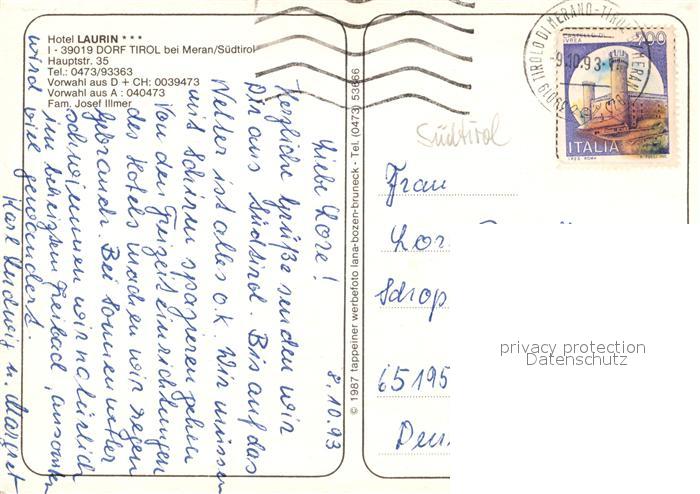 Hotel LAURIN ★★★
I - 39019 DORF TIROL bei Meran/Südtirol
Hauptstr. 35
Tel.: 0473/93363
Vorwahl aus D + CH: 0039473
Vorwahl aus A : 040473
Fam. Josef Illmer
8.10.93
Liebe Lore!
Herzliche Grüße senden wir
Dir aus Südtirol. Bis auf das
Wetter ist alles o.k. Wir müssen
mit Schirm spazieren gehen
Von den Freizeiteinrichtungen
des Hotels machen wir regen
Gebrauch. Bei Sonnenwetter
schwimmen wir natürlich
im beheizten Freibad, ansonsten
wird viel gewandert.
Karl Ludwig u. Margret
© 1987 tappeiner werbefoto lana-bozen-bruneck - Tel. (0473) 53666
39019 TIROLO DI MERANO-TIROL
-9.10.93-
CASTELLO DI
IVREA
700
ITALIA
Südtirol
Frau
Lor
Schop
65195
Deu
privacy protection
Datenschutz